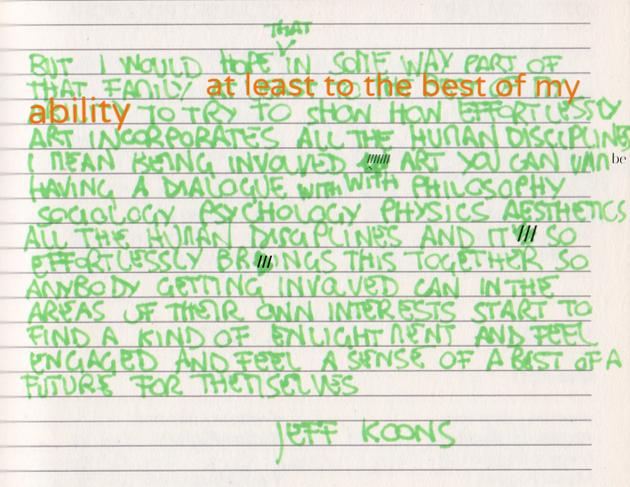 THAT
BUT I WOULD HOPE IN SOME WAY PART OF
THAT FAMILY at least to the best of my
ability TO TRY TO SHOW HOW EFFORTLESSLY
ART INCORPORATES ALL THE HUMAN DISCIPLINES
I MEAN BEING INVOLVED ART YOU CAN be
HAVING A DIALOGUE WITH WITH PHILOSOPHY
SOCIOLOGY PSYCHOLOGY PHYSICS AESTHETICS
ALL THE HUMAN DISCIPLINES AND IT SO
EFFORTLESSLY BRINGS THIS TOGETHER SO
ANYBODY GETTING INVOLVED CAN IN THE
AREAS OF THEIR OWN INTERESTS START TO
FIND A KIND OF ENLIGHTMENT AND FEEL
ENGAGED AND FEEL A SENSE OF A BEST OF A
FUTURE FOR THEMSELVES
JEFF KOONS